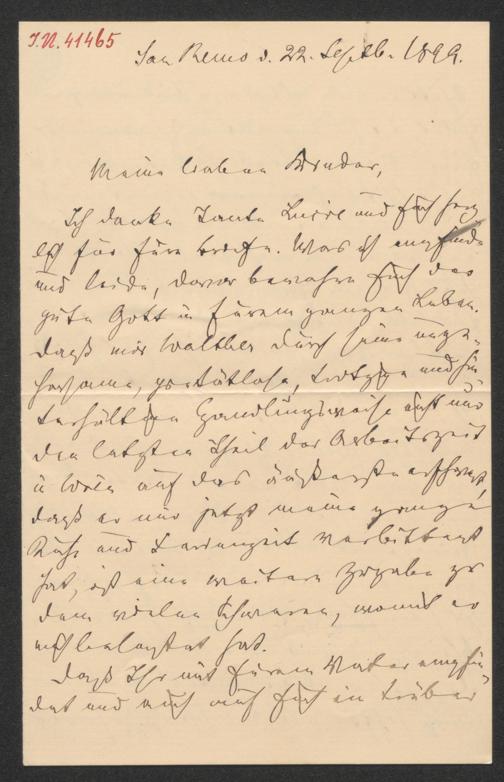 I.N. 41465
San Remo d. 22. Septbr. 1899.
Meine lieben Kinder,
Ich danke Tante Lucie und Euch herz
lich für Eure Briefe. Was ich empfinde
und leide, davor bewahre Euch der
gute Gott in Eurem ganzen Leben.
Daß mir Walther durch seine unge-
horsame, pietätlose, trotzige und hin
terhältige Handlungsweise nicht nur
den letzten Theil der Arbeitszeit
in Wien auf das äußerste erschwert,
daß er mir jetzt meine ganze
Ruhe und Ferienzeit verbittert
hat, ist eine weitere Zugabe zu
dem vielen Schweren, womit er
mich belastet hat.
Daß Ihr mit Eurem Vater empfin
det und auch auf Euch ein trüber